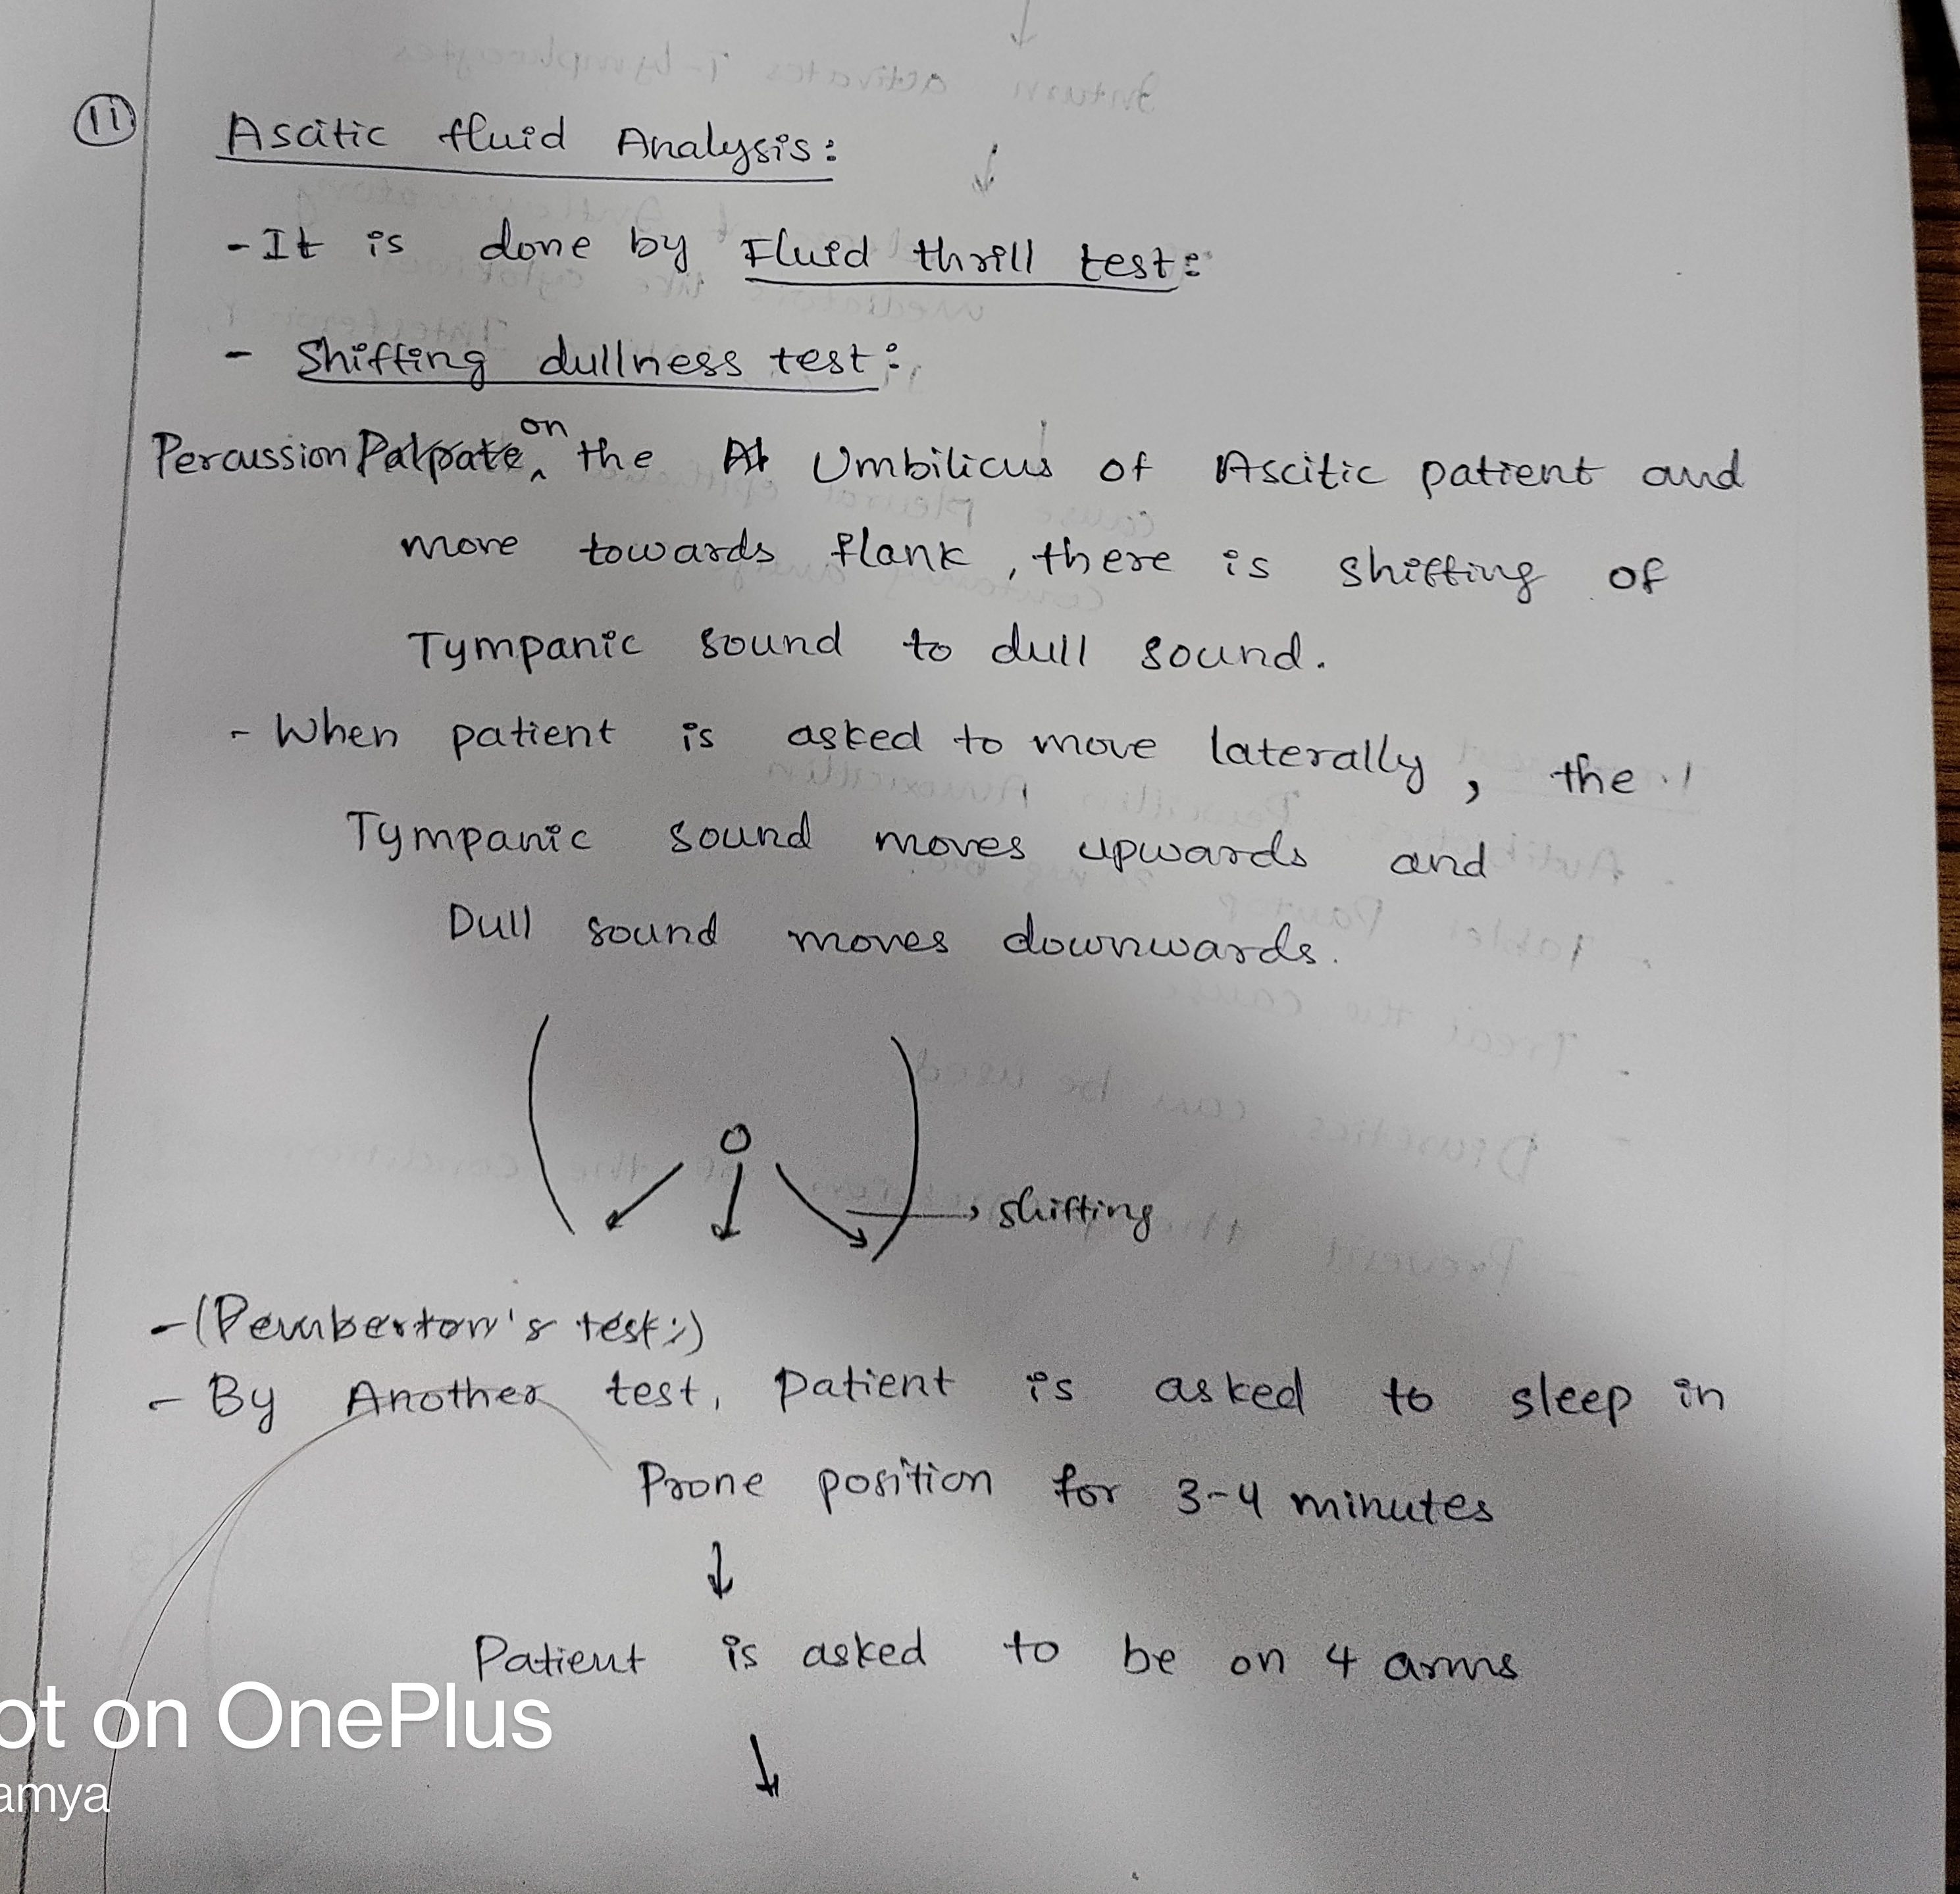 11
Ascitic fluid Analysis:
- It is done by Fluid thrill test:
- Shifting dullness test:
Percussion Palpate on the At Umbilicus of Ascitic patient and
move towards flank, there is shifting of
Tympanic sound to dull sound.
- When patient is asked to move laterally, the
Tympanic sound moves upwards and
Dull sound moves downwards.
shifting
- (Pemberton's test:)
- By Another test, patient is asked to sleep in
Prone position for 3-4 minutes
↓
Patient is asked to be on 4 arms
↓
ot on OnePlus
amya